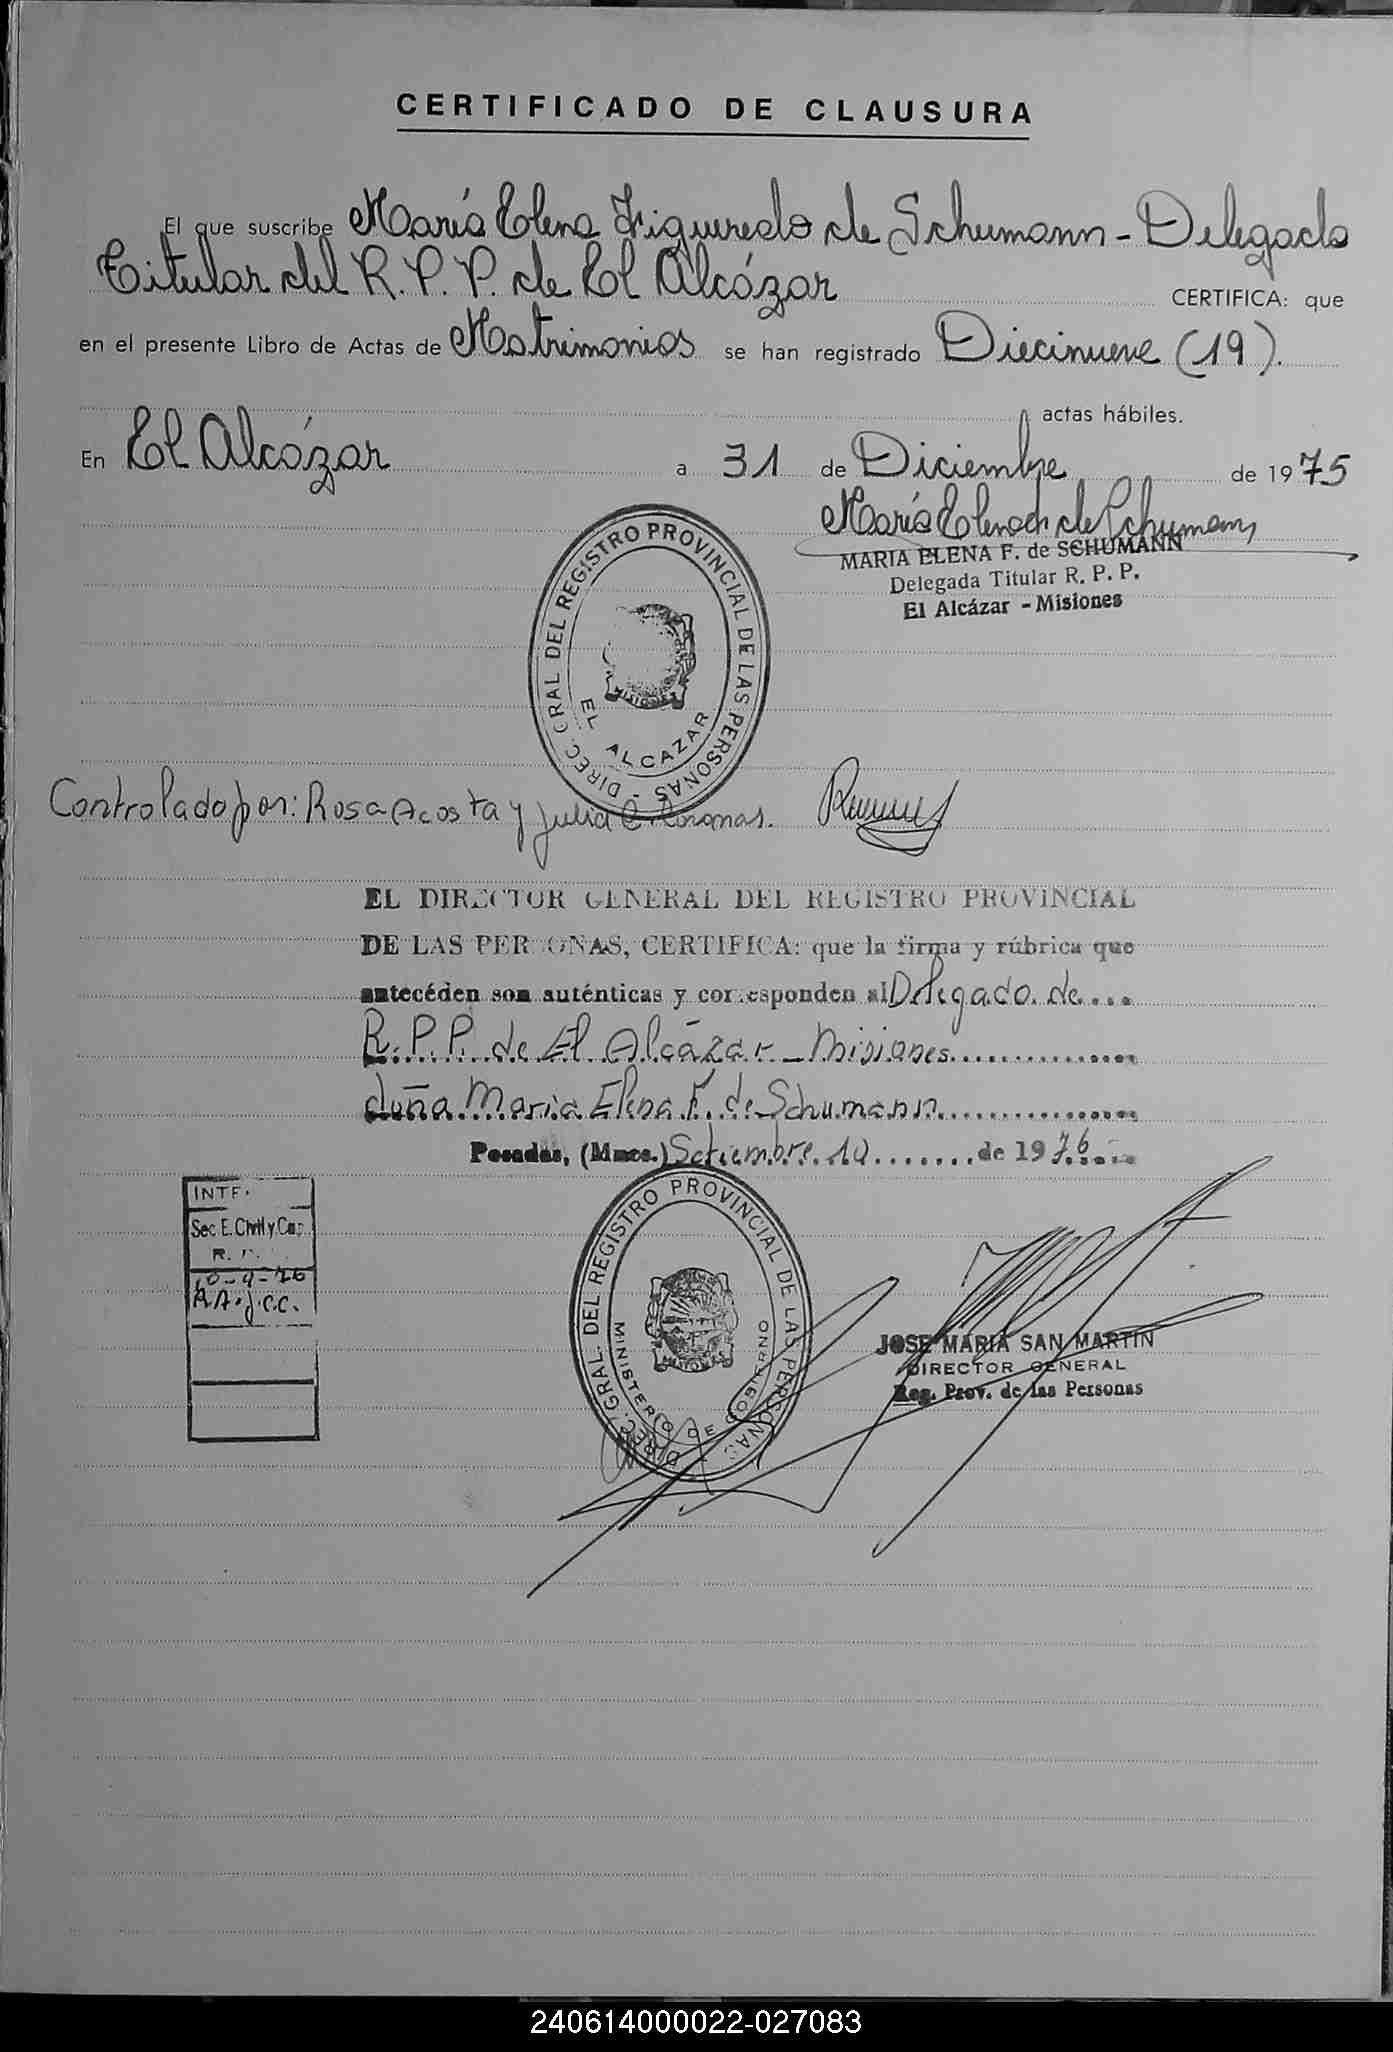 CERTIFICADO DE CLAUSURA
El que suscribe María Elena Figueredo de Schumann - Delegada
Titular del R.P.P. de El Alcázar CERTIFICA: que
en el presente Libro de Actas de Matrimonios se han registrado Diecinueve (19).
actas hábiles.
En El Alcázar a 31 de Diciembre de 1975
María Elena de Schumann
MARIA ELENA F. de SCHUMANN
Delegada Titular R. P. P.
El Alcázar - Misiones
DIREC. GRAL. DEL REGISTRO PROVINCIAL DE LAS PERSONAS -
MISIONES
EL ALCAZAR
Controlado por: Rosa Acosta y Julia C.
EL DIRECTOR GENERAL DEL REGISTRO PROVINCIAL
DE LAS PERSONAS, CERTIFICA: que la firma y rúbrica que
antecéden son auténticas y corresponden al Delegado de...
R.P.P. de El Alcázar - Misiones
doña Maria Elena F. de Schumann
Posadas, (Mnes.) Setiembre 10 de 1976
INTE.
Sec E. Civil y Cap.
R.
10-9-76
RA. J.C.C.
DIREC. GRAL. DEL REGISTRO PROVINCIAL DE LAS PERSONAS
MINISTERIO DE GOBIERNO
MISIONES
JOSE MARIA SAN MARTIN
DIRECTOR GENERAL
Reg. Prov. de las Personas
240614000022-027083